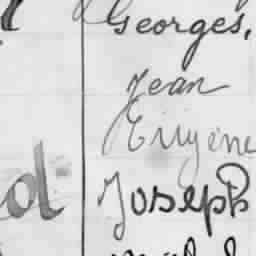 Georges,
Jean
Eugène
d Joseph